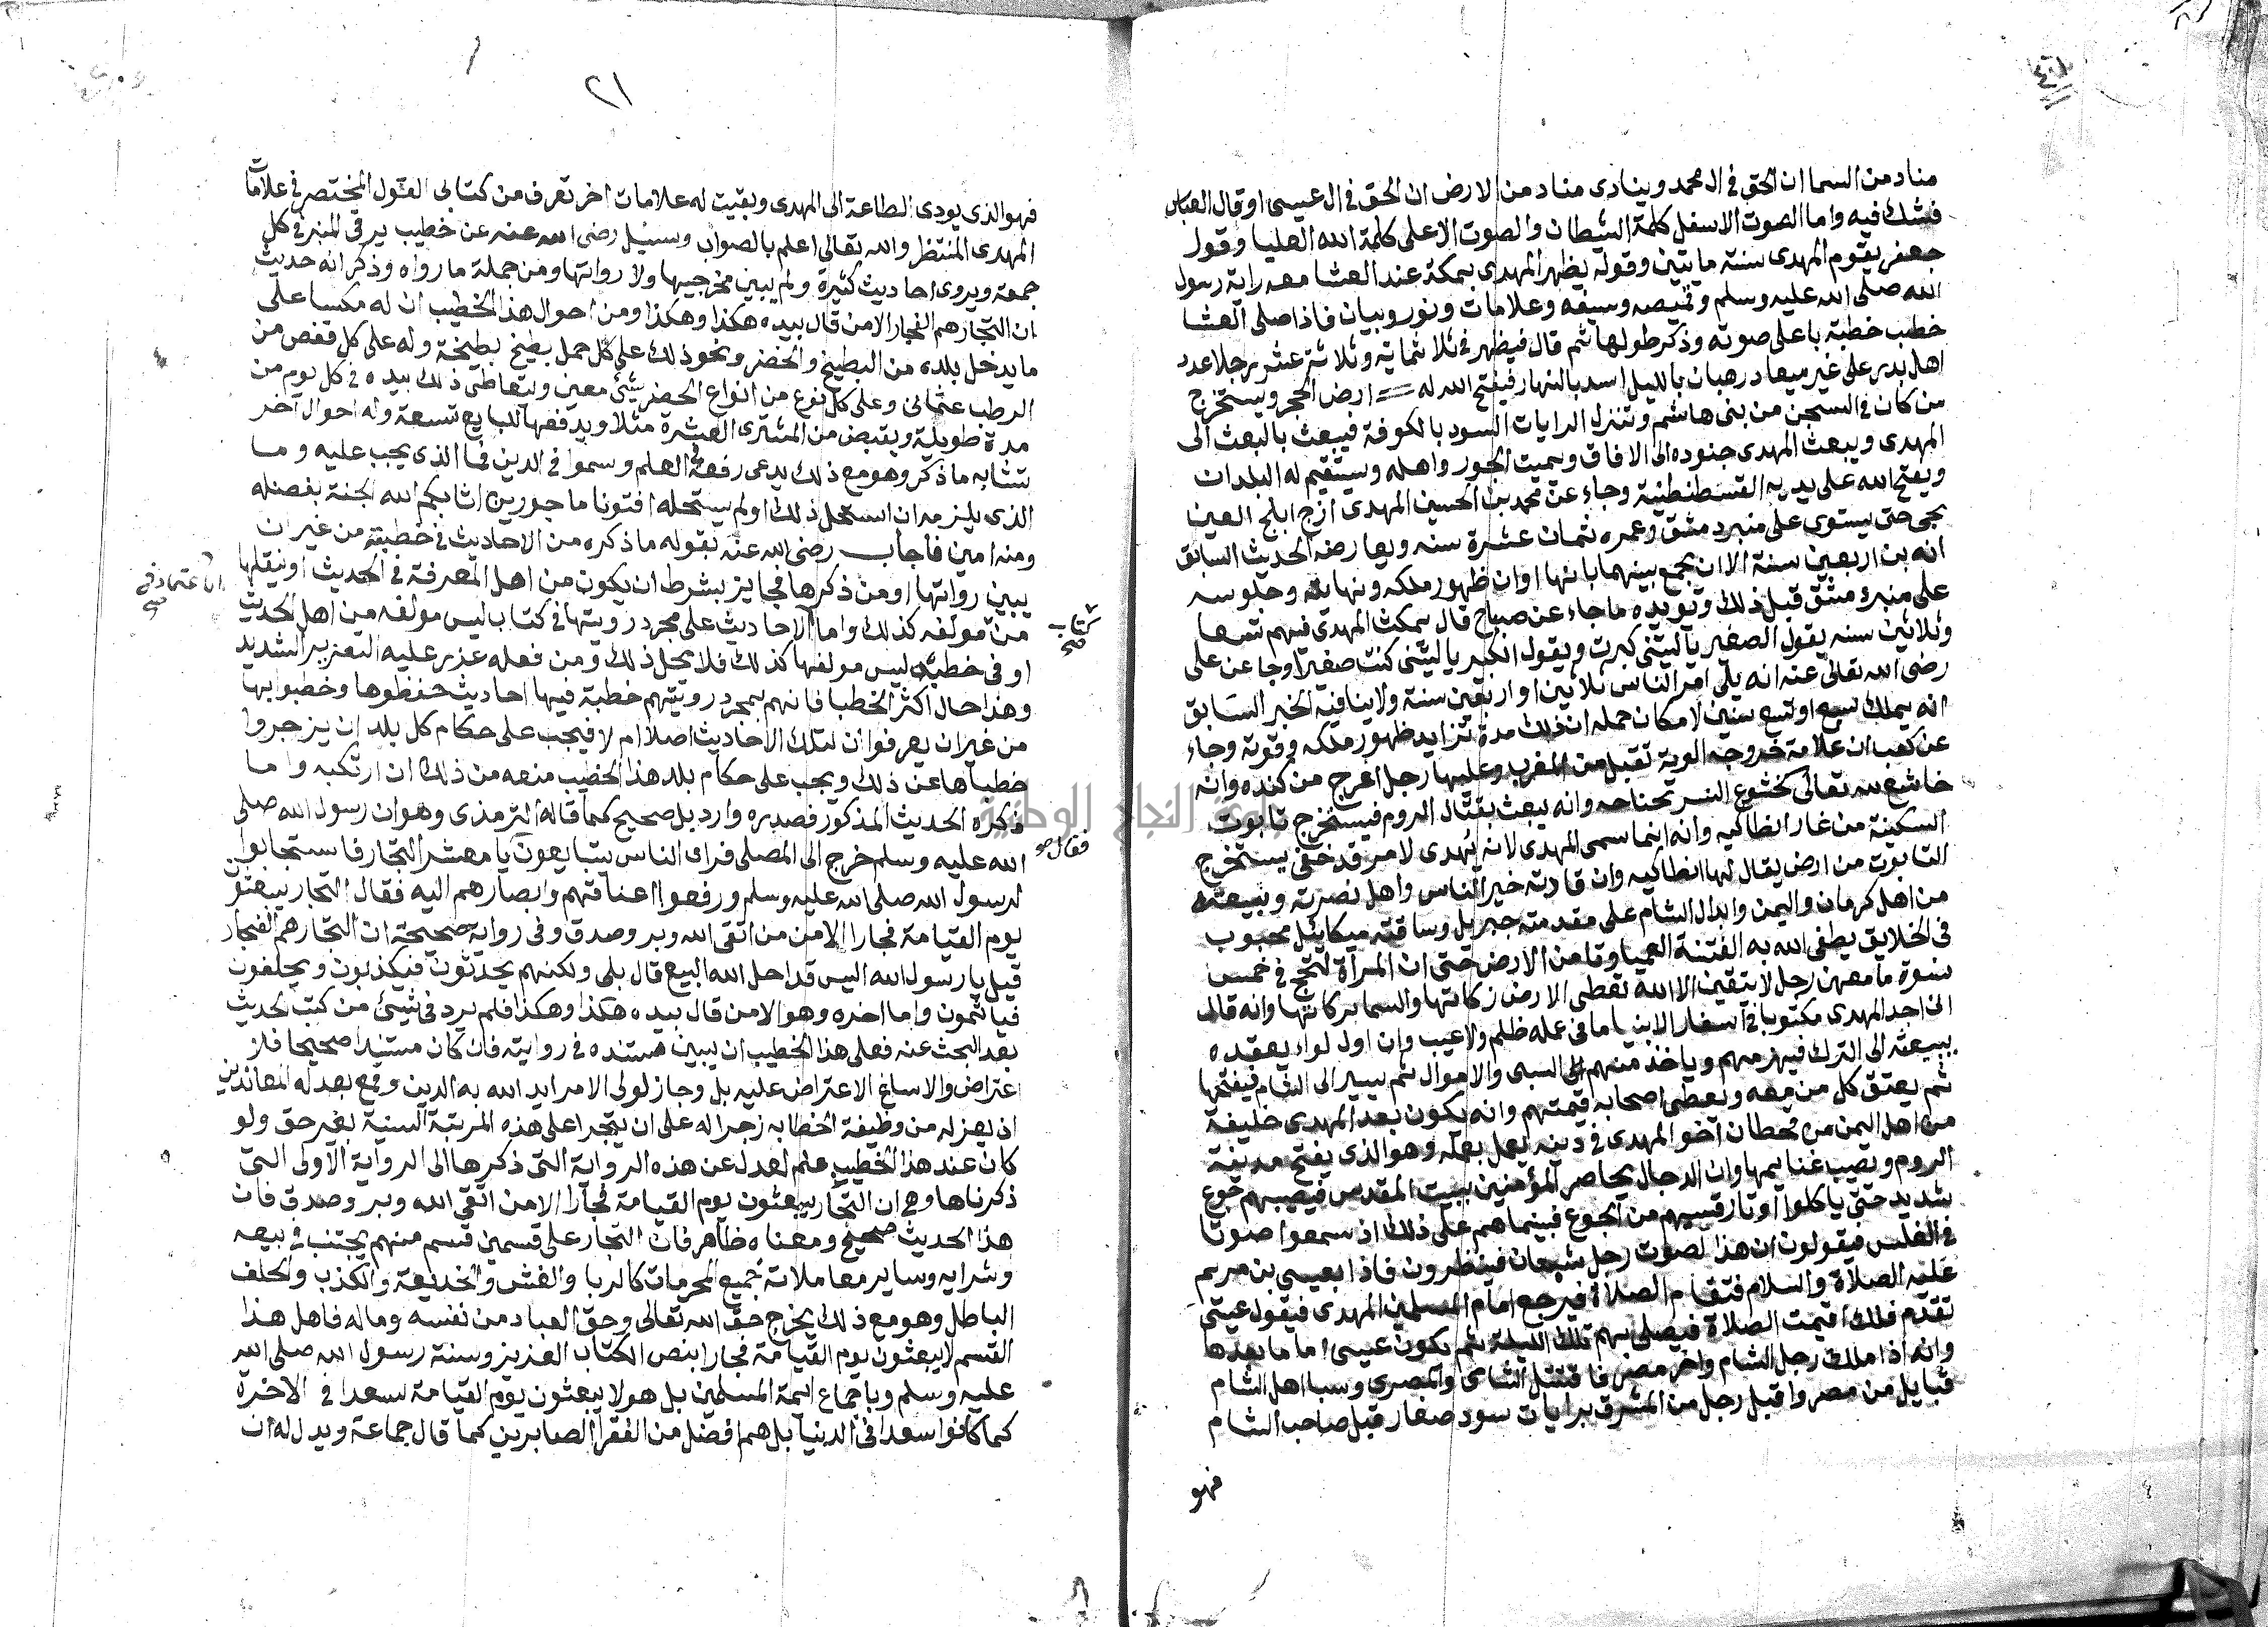 مناد من السما ان الحق في ال محمد وينادى مناد من الارض ان الحق في ال عيسى او قال العباس
فشك فيه واما الصوت الاسفل كلمة الشيطان والصوت الاعلى كلمة الله العليا وقول
جعفر يقوم المهدى سنة مايتين وقوله يظهر المهدى بمكة عند العشا معه راية رسول
الله صلى الله عليه وسلم وقميصه وسيفه وعلامات ونور وبيان فاذا صلى العشا
خطب خطبة باعلى صوته وذكر طولها ثم قال فيظهر في ثلاثماية وثلاثة عشر رجلا عدد
اهل بدر على غير ميعاد رهبان بالليل اسد بالنهار فيفتح الله له ارض الحجر ويستخرج
من كان في السجن من بنى هاشم وتنزل الرايات السود بالكوفة فيبعث بالبعث الى
المهدى ويبعث المهدى جنوده الى الافاق ويميت الجور واهله ويستقيم له البلدان
ويفتح الله على يديه القسطنطنية وجاء عن محمد بن الحسين المهدى ازج ابلج العين
يجى حتى يستوى على منبر دمشق وعمره ثمان عشرة سنه ويعارضه الحديث السابق
انه بن اربعين سنة الا ان يجمع بينهما بانها اوان ظهور ملكه ونهايته وجلوسه
على منبر دمشق قبل ذلك ويويده ما جاء عن صباح قال يمكث المهدى فيهم تسعا
وثلاثين سنه يقول الصغير ياليتنى كبرت ويقول الكبير ياليتنى كنت صغيرا وجا عن على
رضى الله تعالى عنه انه يلى امر الناس ثلاثين او اربعين سنة ولا ينافيه الخبر السابق
انه يملك سبع او تسع سنين لامكان حمله ان ذلك مدة تزايد ظهور ملكه وقوته وجاء
عن كعب ان علامة خروجه الوية تقبل من المغرب وعليها رجل اعرج من كنده وانه
خاشع لله تعالى كخشوع النسر بجناحه وانه يبعث بقتال الروم فيستخرج تابوت
السكينة من غار انطاكيه وانه انما سمى المهدى لانه يهدى لامر قد خفى يستخرج
التابوت من ارض يقال لها انطاكيه وان قادته خير الناس واهل نصرته وبيعته
من اهل كرمان واليمن وابدال الشام على مقدمته جبريل وساقته ميكائيل محبوب
في الخلايق يطفى الله به الفتنة العميا وتامن الارض حتى ان المراة لتحج في خمس
نسوة ما معهن رجل لا يتقين الا الله تعطى الارض زكاتها والسما بركاتها وانه قال
انى اجد المهدى مكتوبا في اسفار الانبيا ما في عمله ظلم ولا عيب وان اول لواء يعقده
يبعثه الى الترك فيهزمهم وياخذ منهم السبى والاموال ثم يسير الى الشام فيفتحها
ثم يعتق كل من معه ويعطى اصحابه قيمتهم وانه يكون بعد المهدى خليفة
من اهل اليمن من قحطان اخو المهدى في دينه يعمل بعمله وهو الذى يفتح مدينة
الروم ويصيب غنايمها وان الدجال يحاصر المؤمنين ببيت المقدس فيصيبهم جوع
شديد حتى ياكلوا اوتار قسيهم من الجوع فبينما هم على ذلك اذ سمعوا صوتا
في الغلس فيقولون ان هذا لصوت رجل شبعان فينظرون فاذا بعيسى بن مريم
عليه الصلاة والسلام فتقام الصلاة فيرجع امام المسلمين المهدى فيقول عيسى
تقدم فلك اقيمت الصلاة فيصلى بهم تلك الليلة ثم يكون عيسى اماما بعدها
وانه اذا ملك رجل الشام واخر مصر فاقتتل الشامى والمصرى وسبا اهل الشام
قبايل من مصر واقبل رجل من المشرق برايات سود صغار قبل صاحب الشام
فهو
٢١
فهو الذى يودى الطاعة الى المهدى وبقيت له علامات اخر تعرف من كتابى القول المختصر في علامات
المهدى المنتظر والله تعالى اعلم بالصواب وسيل رضى الله عنه عن خطيب يرقى المنبر في كل
جمعة ويروى احاديث كثيرة ولم يبين مخرجيها ولا رواتها ومن جملة ما رواه وذكر انه حديث
ان التجار هم الفجار الا من قال بيده هكذا وهكذا ومن احوال هذا الخطيب ان له مكسا على
ما يدخل بلده من البطيخ والخضر ونحو ذلك على كل حمل بطيخ بطيخة وله على كل قفص من
الرطب عثمانى وعلى كل نوع من انواع الخضر شئ معين ويتعاطى ذلك بيده في كل يوم من
مدة طويلة ويقبض من المشترى العشرة مثلا ويدفعها للبايع تسعة وله احوال اخر
تشابه ما ذكر وهو مع ذلك يدعى رفعة في العلم وسموا في الدين فما الذى يجب عليه وما
الذى يلزمه ان استحل ذلك او لم يستحله افتونا ماجورين اثابكم الله الجنة بفضله
ومنه امين فاجاب رضى الله عنه بقوله ما ذكره من الاحاديث في خطبته من غير ان
يبين رواتها او من ذكرها فجايز بشرط ان يكون من اهل المعرفة في الحديث او ينقلها
من مولفه كذلك واما الاحاديث على مجرد رويتها في كتاب ليس مولفه من اهل الحديث
او في خطب ليس مولفها كذلك فلا يحل ذلك ومن فعله عذر عليه التعزير الشديد
وهذا حال اكثر الخطبا فانهم بمجرد رويتهم خطبة فيها احاديث حفظوها وخطبوا بها
من غير ان يعرفوا ان لتلك الاحاديث اصلا ام لا فيجب على حكام كل بلد ان يزجروا
خطباها عن ذلك ويجب على حكام بلد هذا الخطيب منعه من ذلك ان ارتكبه واما
ذكره الحديث المذكور فصدره وارد بل صحيح كما قاله الترمذى وهو ان رسول الله صلى
الله عليه وسلم خرج الى المصلى فراى الناس يتبايعون يا معشر التجار فاستجابوا
لرسول الله صلى الله عليه وسلم ورفعوا اعناقهم وابصارهم اليه فقال التجار يبعثون
يوم القيامة فجارا الا من اتقى الله وبر وصدق وفي رواية صحيحة ان التجار هم الفجار
قيل يا رسول الله اليس قد احل الله البيع قال بلى ولكنهم يحدثون فيكذبون ويحلفون
فياثمون واما اخره وهو الا من قال بيده هكذا وهكذا فلم يرد في شيئ من كتب الحديث
بعد البحث عنه فعلى هذا الخطيب ان يبين مستنده في روايته فان كان مستندا صحيحا فلا
اعتراض والا ساغ الاعتراض عليه بل وجاز لولى الامر ايد الله به الدين وقمع بعدله المعاندين
ان يعزله من وظيفة الخطابه زجرا له على ان يتجرا على هذه المرتبة السنية بغير حق ولو
كان عند هذا الخطيب علم لعدل عن هذه الرواية التى ذكرها الى الرواية الاولى التى
ذكرناها وهى ان التجار يبعثون يوم القيامة فجارا الا من اتقى الله وبر وصدق فان
هذا الحديث صحيح ومعناه ظاهر فان التجار على قسمين قسم منهم يجتنب في بيعه
وشرايه وساير معاملاته جميع المحرمات كالربا والغش والخديعة والكذب والحلف
الباطل وهو مع ذلك يخرج حق الله تعالى وحق العباد من نفسه وماله فاهل هذا
القسم لا يبعثون يوم القيامة فجارا بنص الكتاب العزيز وسنة رسول الله صلى الله
عليه وسلم وباجماع ايمة المسلمين بل هولا يبعثون يوم القيامة سعدا في الاخرة
كما كانوا سعدا في الدنيا بل هم افضل من الفقرا الصابرين كما قال جماعة ويدل له ان
الاعتماد في
صح
كتاب
صح
فقال
النجاح الوطنية